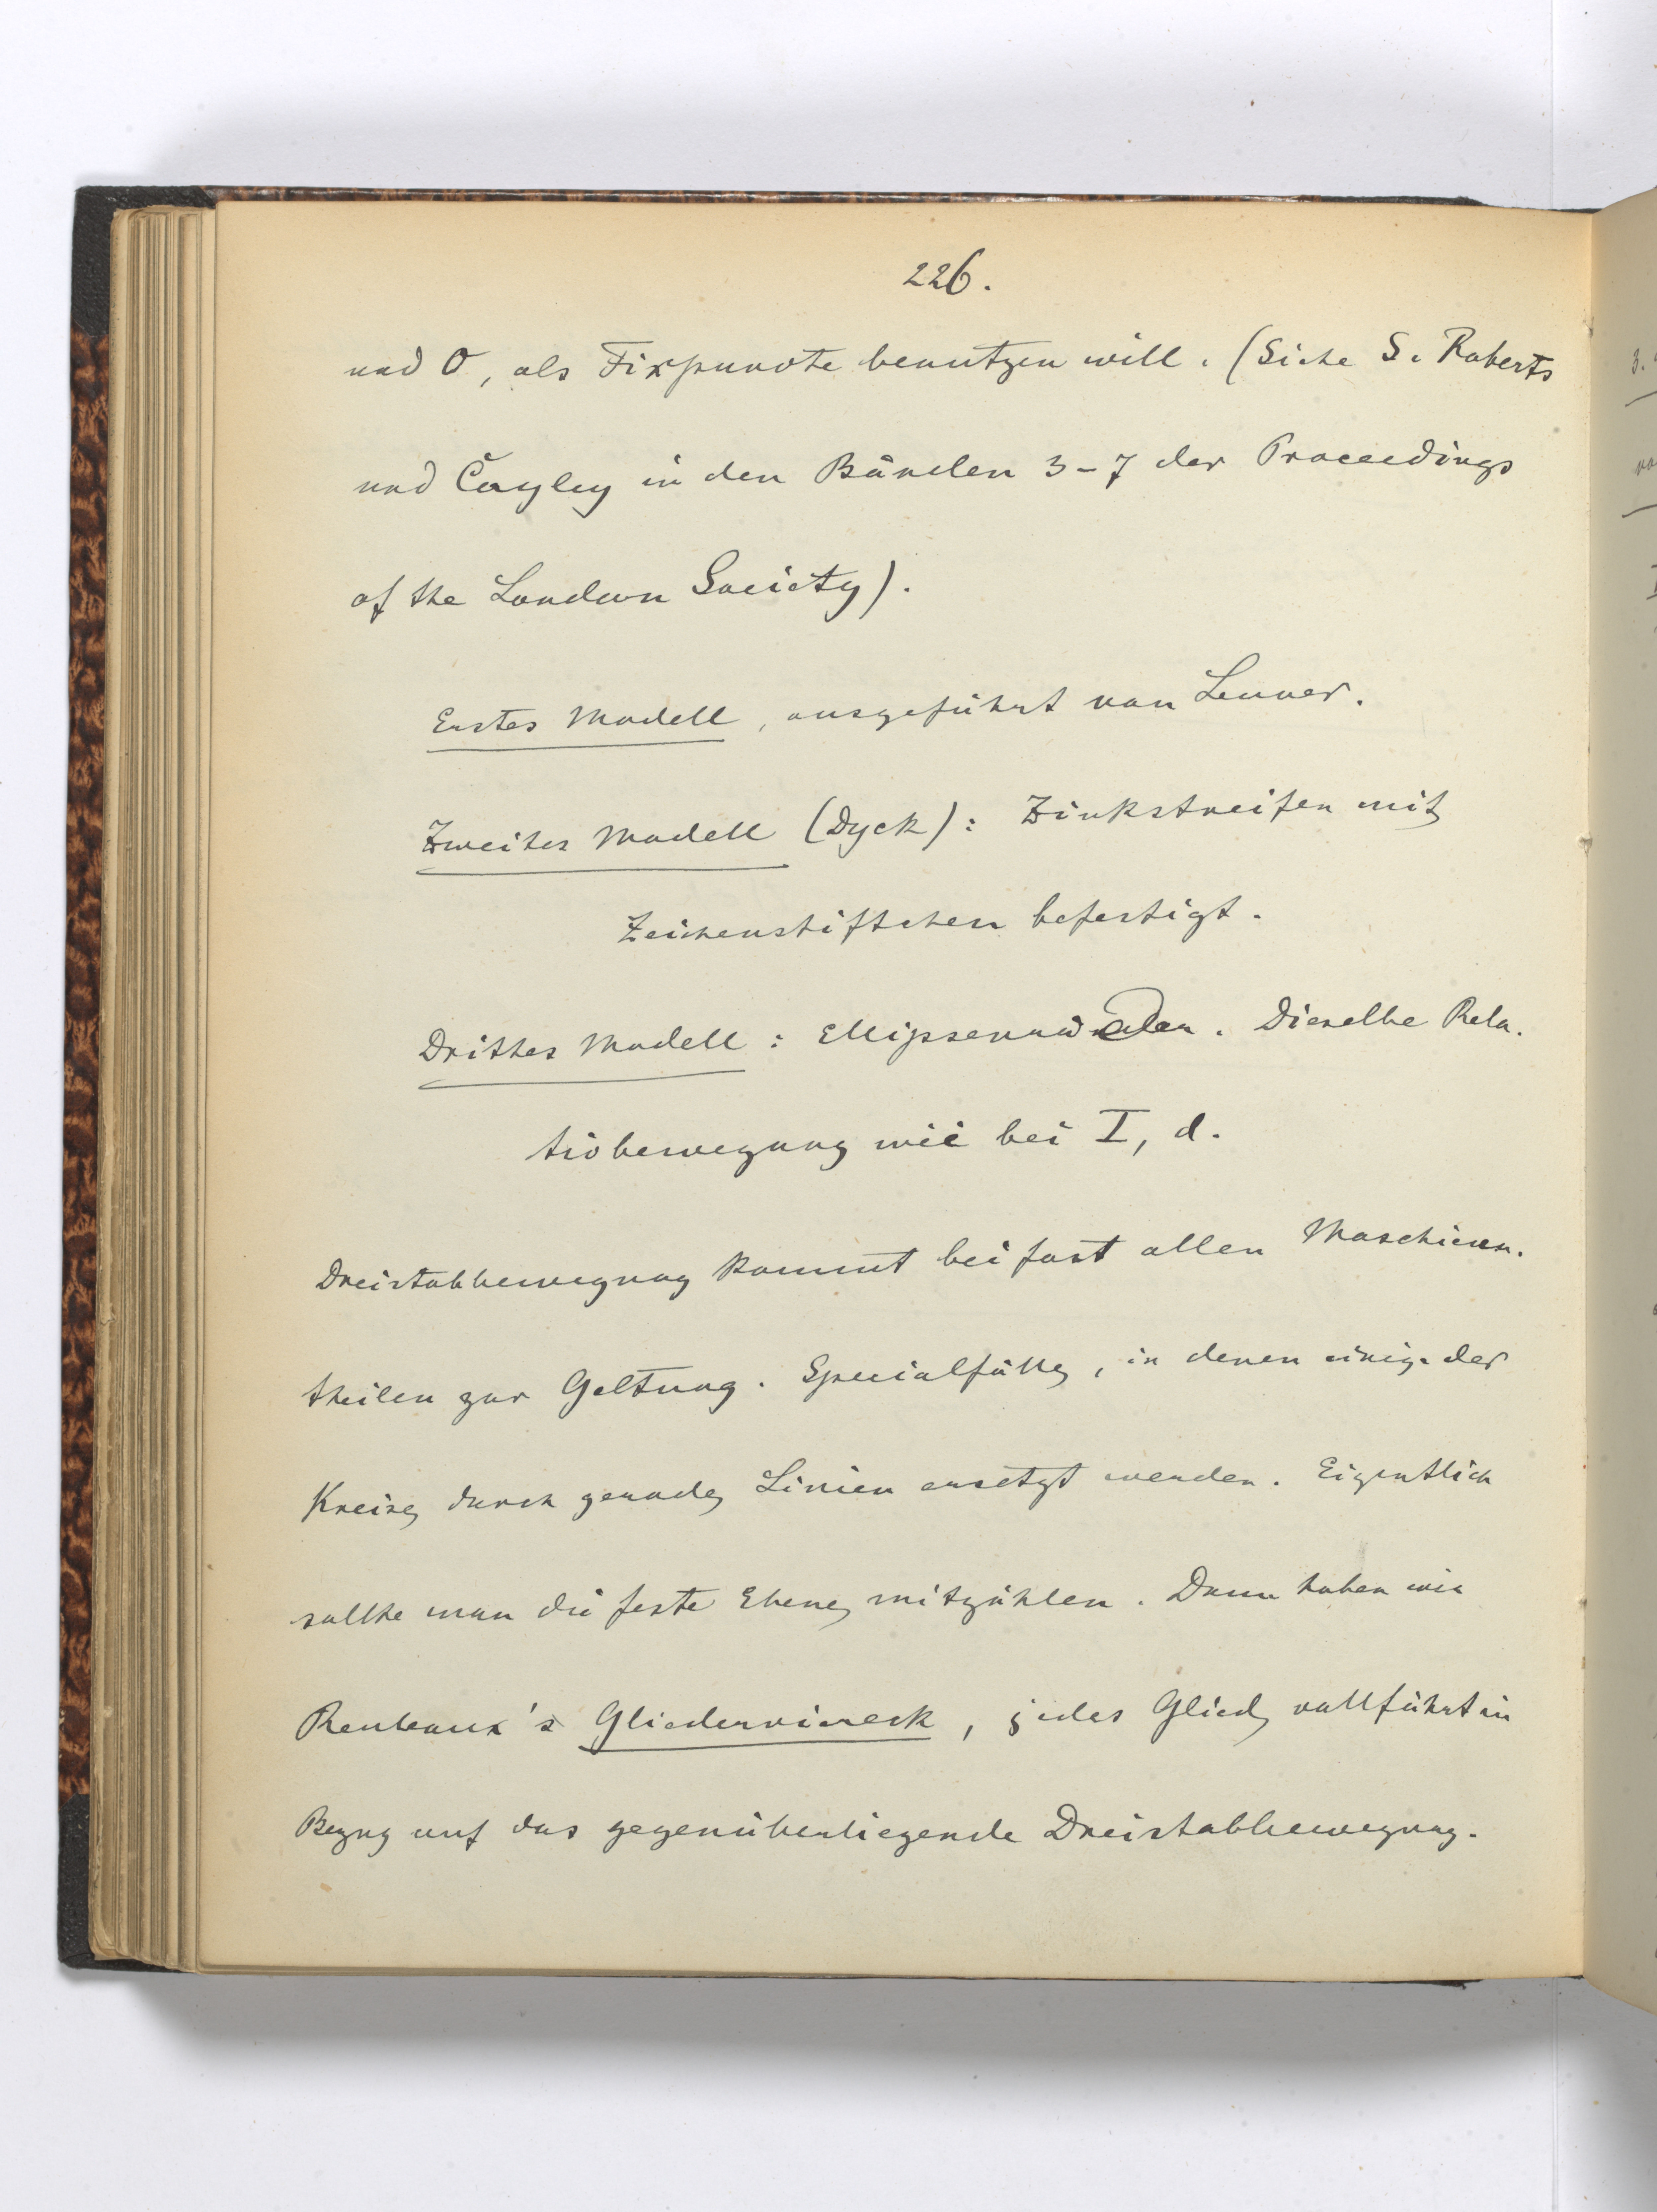 226.
und O, als Fixpuncte benutzen will. (Siehe S. Roberts
und Cayley in den Bänden 3-7 der Proceedings
of the London Society).
Erstes Modell, ausgeführt von
Zweites Modell (Dyck): Zinkstreifen mit
Zeichenstiftchen befestigt.
Drittes Modell: Dieselbe Rela-
tivbewegung wie bei I, d.
Dreistabbewegung kommt bei fast allen Maschinen-
theilen zur Geltung. Specialfälle, in denen einige der
Kreise durch gerade Linien ersetzt werden. Eigentlich
sollte man die feste Ebene mitzählen. Dann haben wir
Reuleaux's Gliederviereck, jedes Glied vollführt in
Bezug auf das gegenüberliegende Dreistabbewegung.